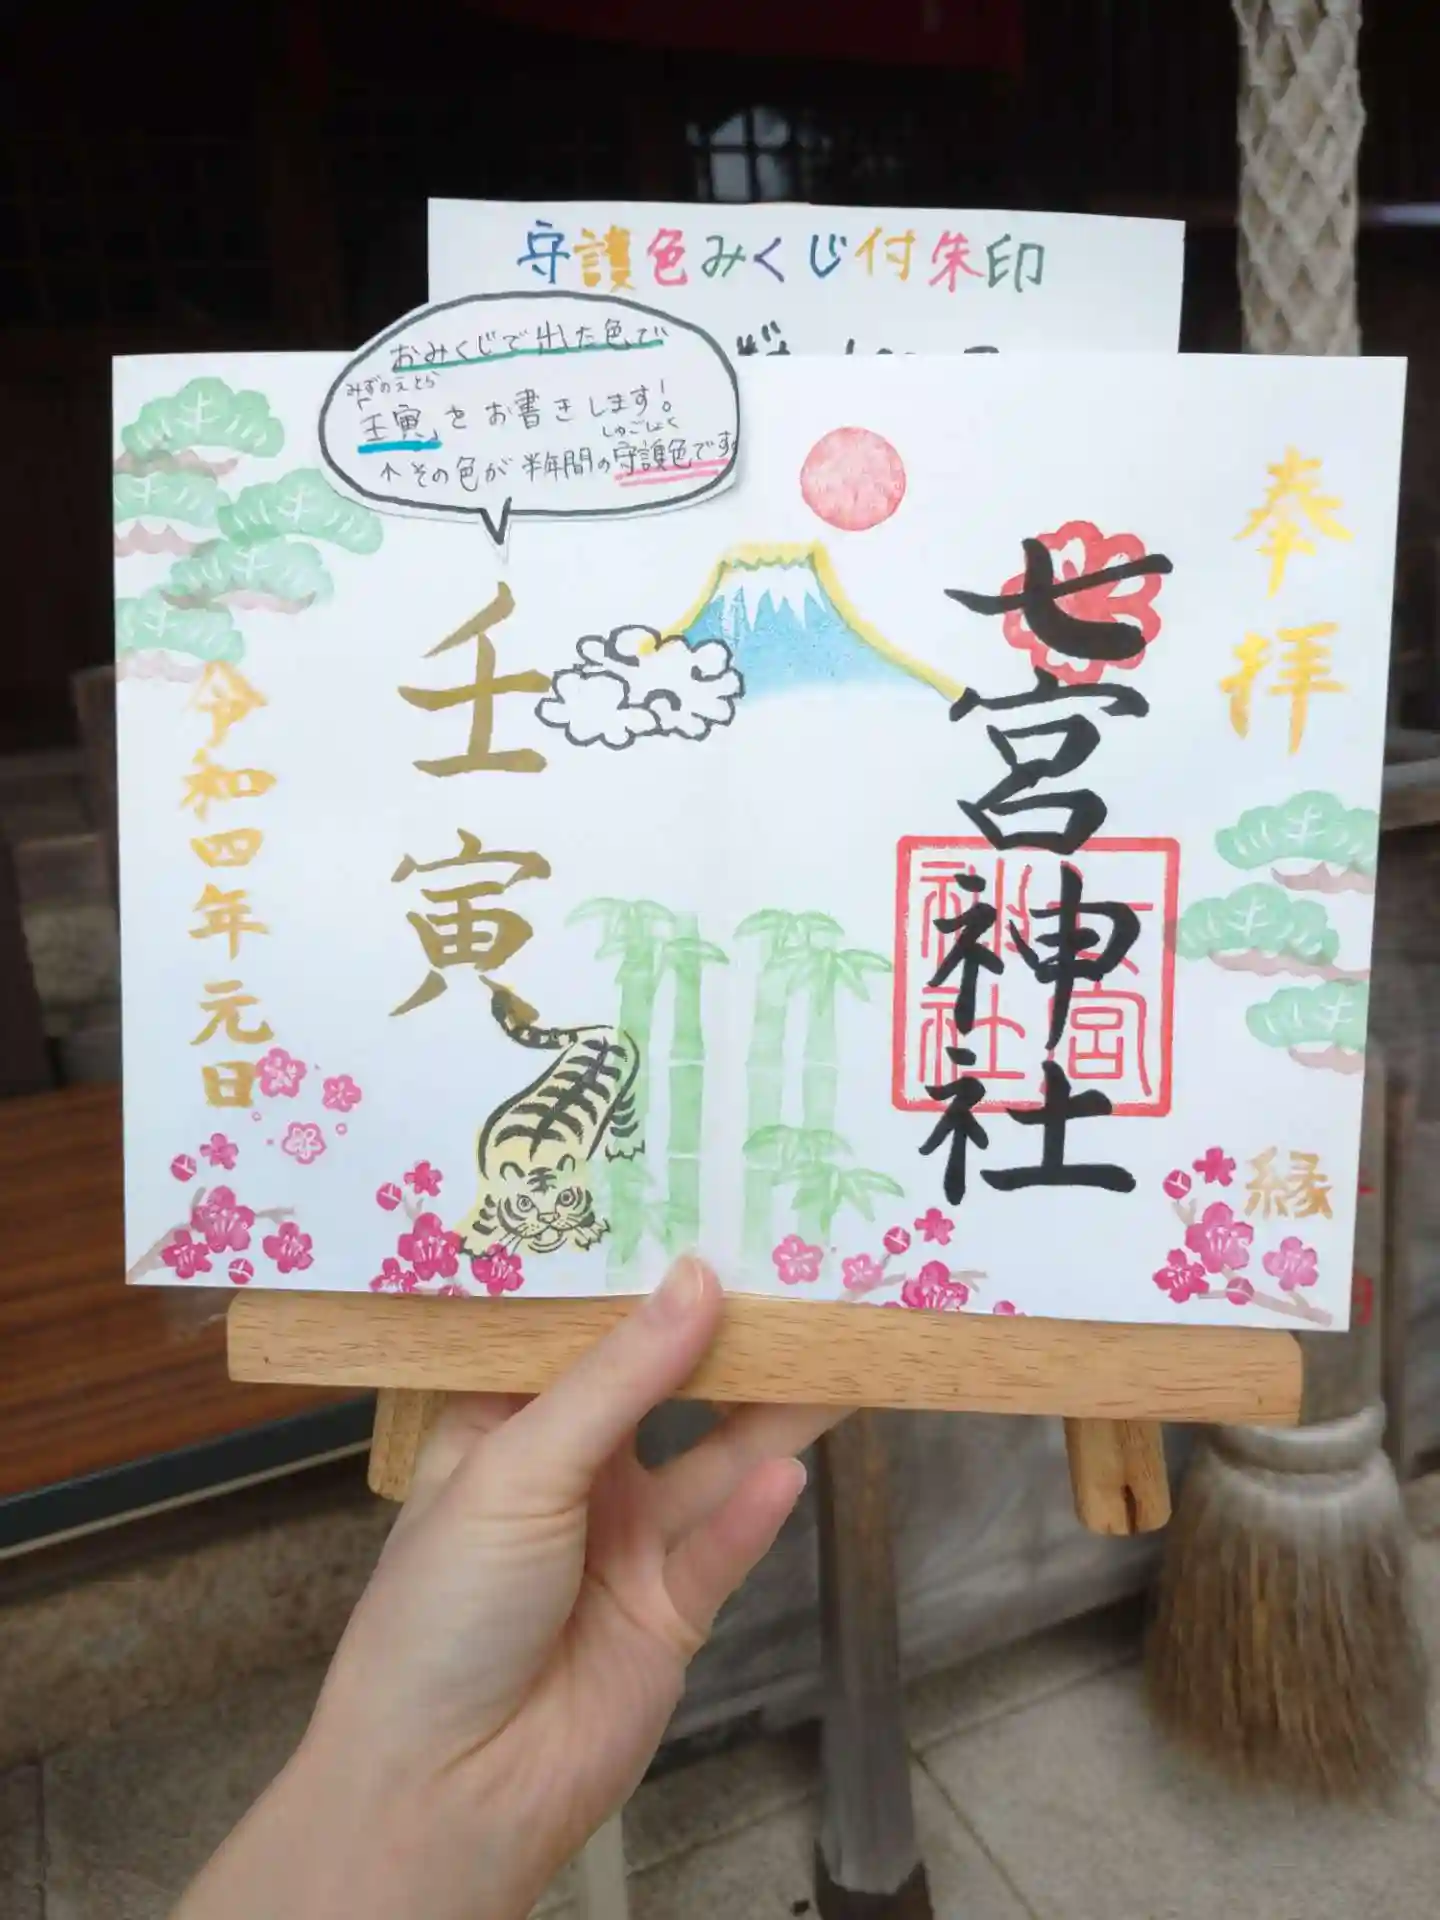 守護色みくじ付朱印
おみくじで出た色で
みずのえとら
「壬寅」をお書きします!
しゅごしょく
↑その色が半年間の守護色です。
奉拝
七宮神社
縁
壬寅
令和四年元日